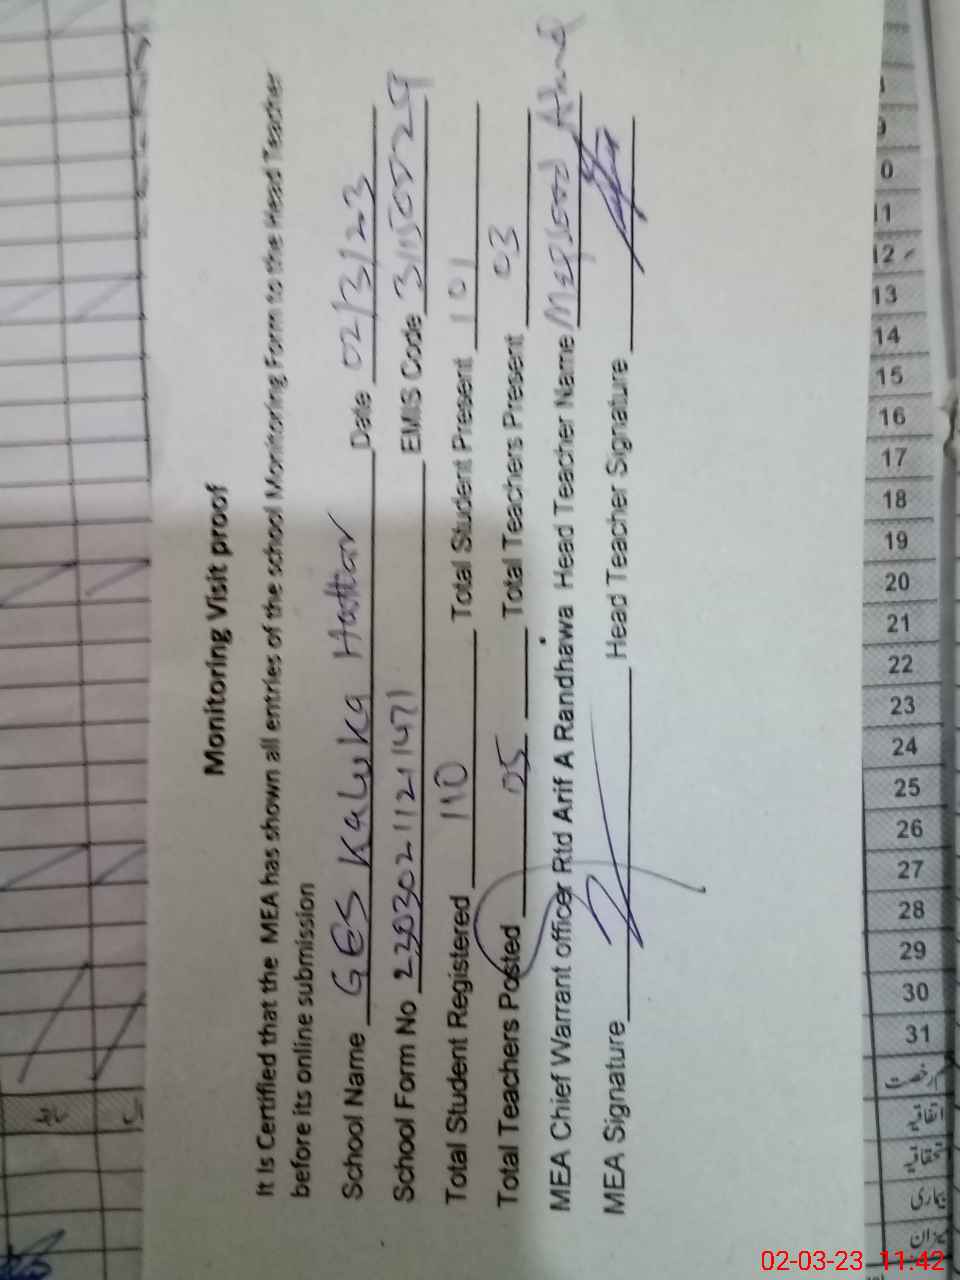 Monitoring Visit proof
It Is Certified that the MEA has shown all entries of the school Monitoring Form to the Head Teacher
before its online submission
School Name GES Kaluka Hattar Date 02/3/23
School Form No 23030211211471 EMIS Code
Total Student Registered 110 Total Student Present 101
Total Teachers Posted 05 Total Teachers Present 03
MEA Chief Warrant officer Rtd Arif A Randhawa Head Teacher Name Maqsood Ahmad
MEA Signature Head Teacher Signature
0
11
12
13
14
15
16
17
18
19
20
21
22
23
24
25
26
27
28
29
30
31
رخصت
اتفاقیہ
استحقاقیہ
بیماری
میزان
02-03-23 11:42